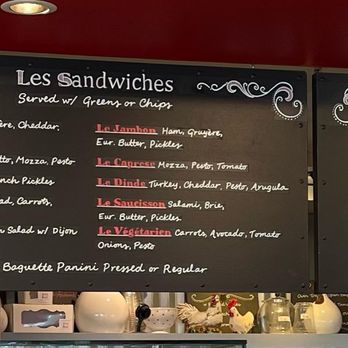 Les Sandwiches
Served w/ Greens or Chips
Cheddar,
Mozza, Pesto
Pickles
Carrots,
Salad w/ Dijon
Le Jambon Ham, Gruyère,
Eur. Butter, Pickles
Le Caprese Mozza, Pesto, Tomato
Le Dinde Turkey, Cheddar, Pesto, Arugula
Le Saucisson Salami, Brie,
Eur. Butter, Pickles
Le Végétarien Carrots, Avocado, Tomato
Onions, Pesto
Baguette Panini Pressed or Regular